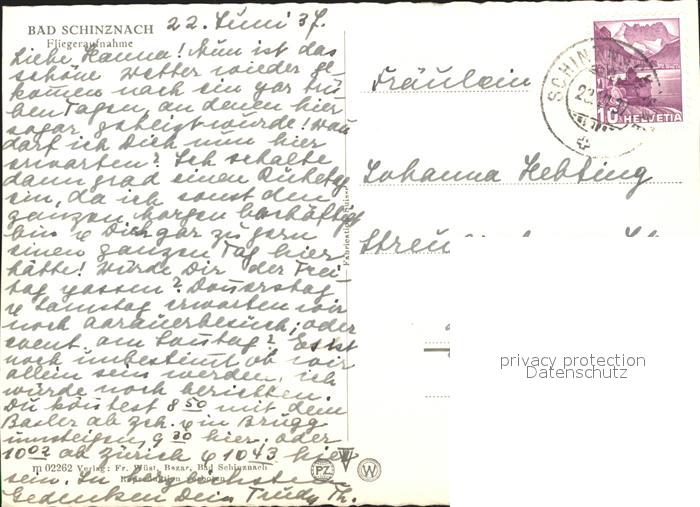 BAD SCHINZNACH
Fliegeraufnahme
22. Juni 37.
Liebe Hanna! Nun ist das
schöne Wetter wieder ge
kommen nach ein par trü
ben Tagen, an denen hier
sogar geheizt wurde! Wann
darf ich Dich nun hier
erwarten? Ich schalte
dann grad einen Ruhetag
ein, da ich sonst den
ganzen Morgen beschäftigt
bin & Dich gar zu gern
einen ganzen Tag hier
hätte! Würde Dir der Frei
tag passen? Donnerstag
& Samstag erwarten wir
noch Aarauerbesuch; oder
event. am Sonntag? Es ist
noch unbestimmt ob wir
allein sein werden, ich
würde noch berichten.
Du könntest 8 50 mit dem
Basler ab Zch. & in Brugg
umsteigen, 9 30 hier; oder
10 02 ab Zürich & 10 43 hier
m 02262 Verlag: Fr. Wüst, Bazar, Bad Schinznach
sein. In herzlichstem
Reproduktion verboten
Gedenken Dein Trudy Th.
Fabrication Suisse
PZ
W
SCHINZNACH
10 HELVETIA
Fräulein
Johanna Hebting
privacy protection
Datenschutz